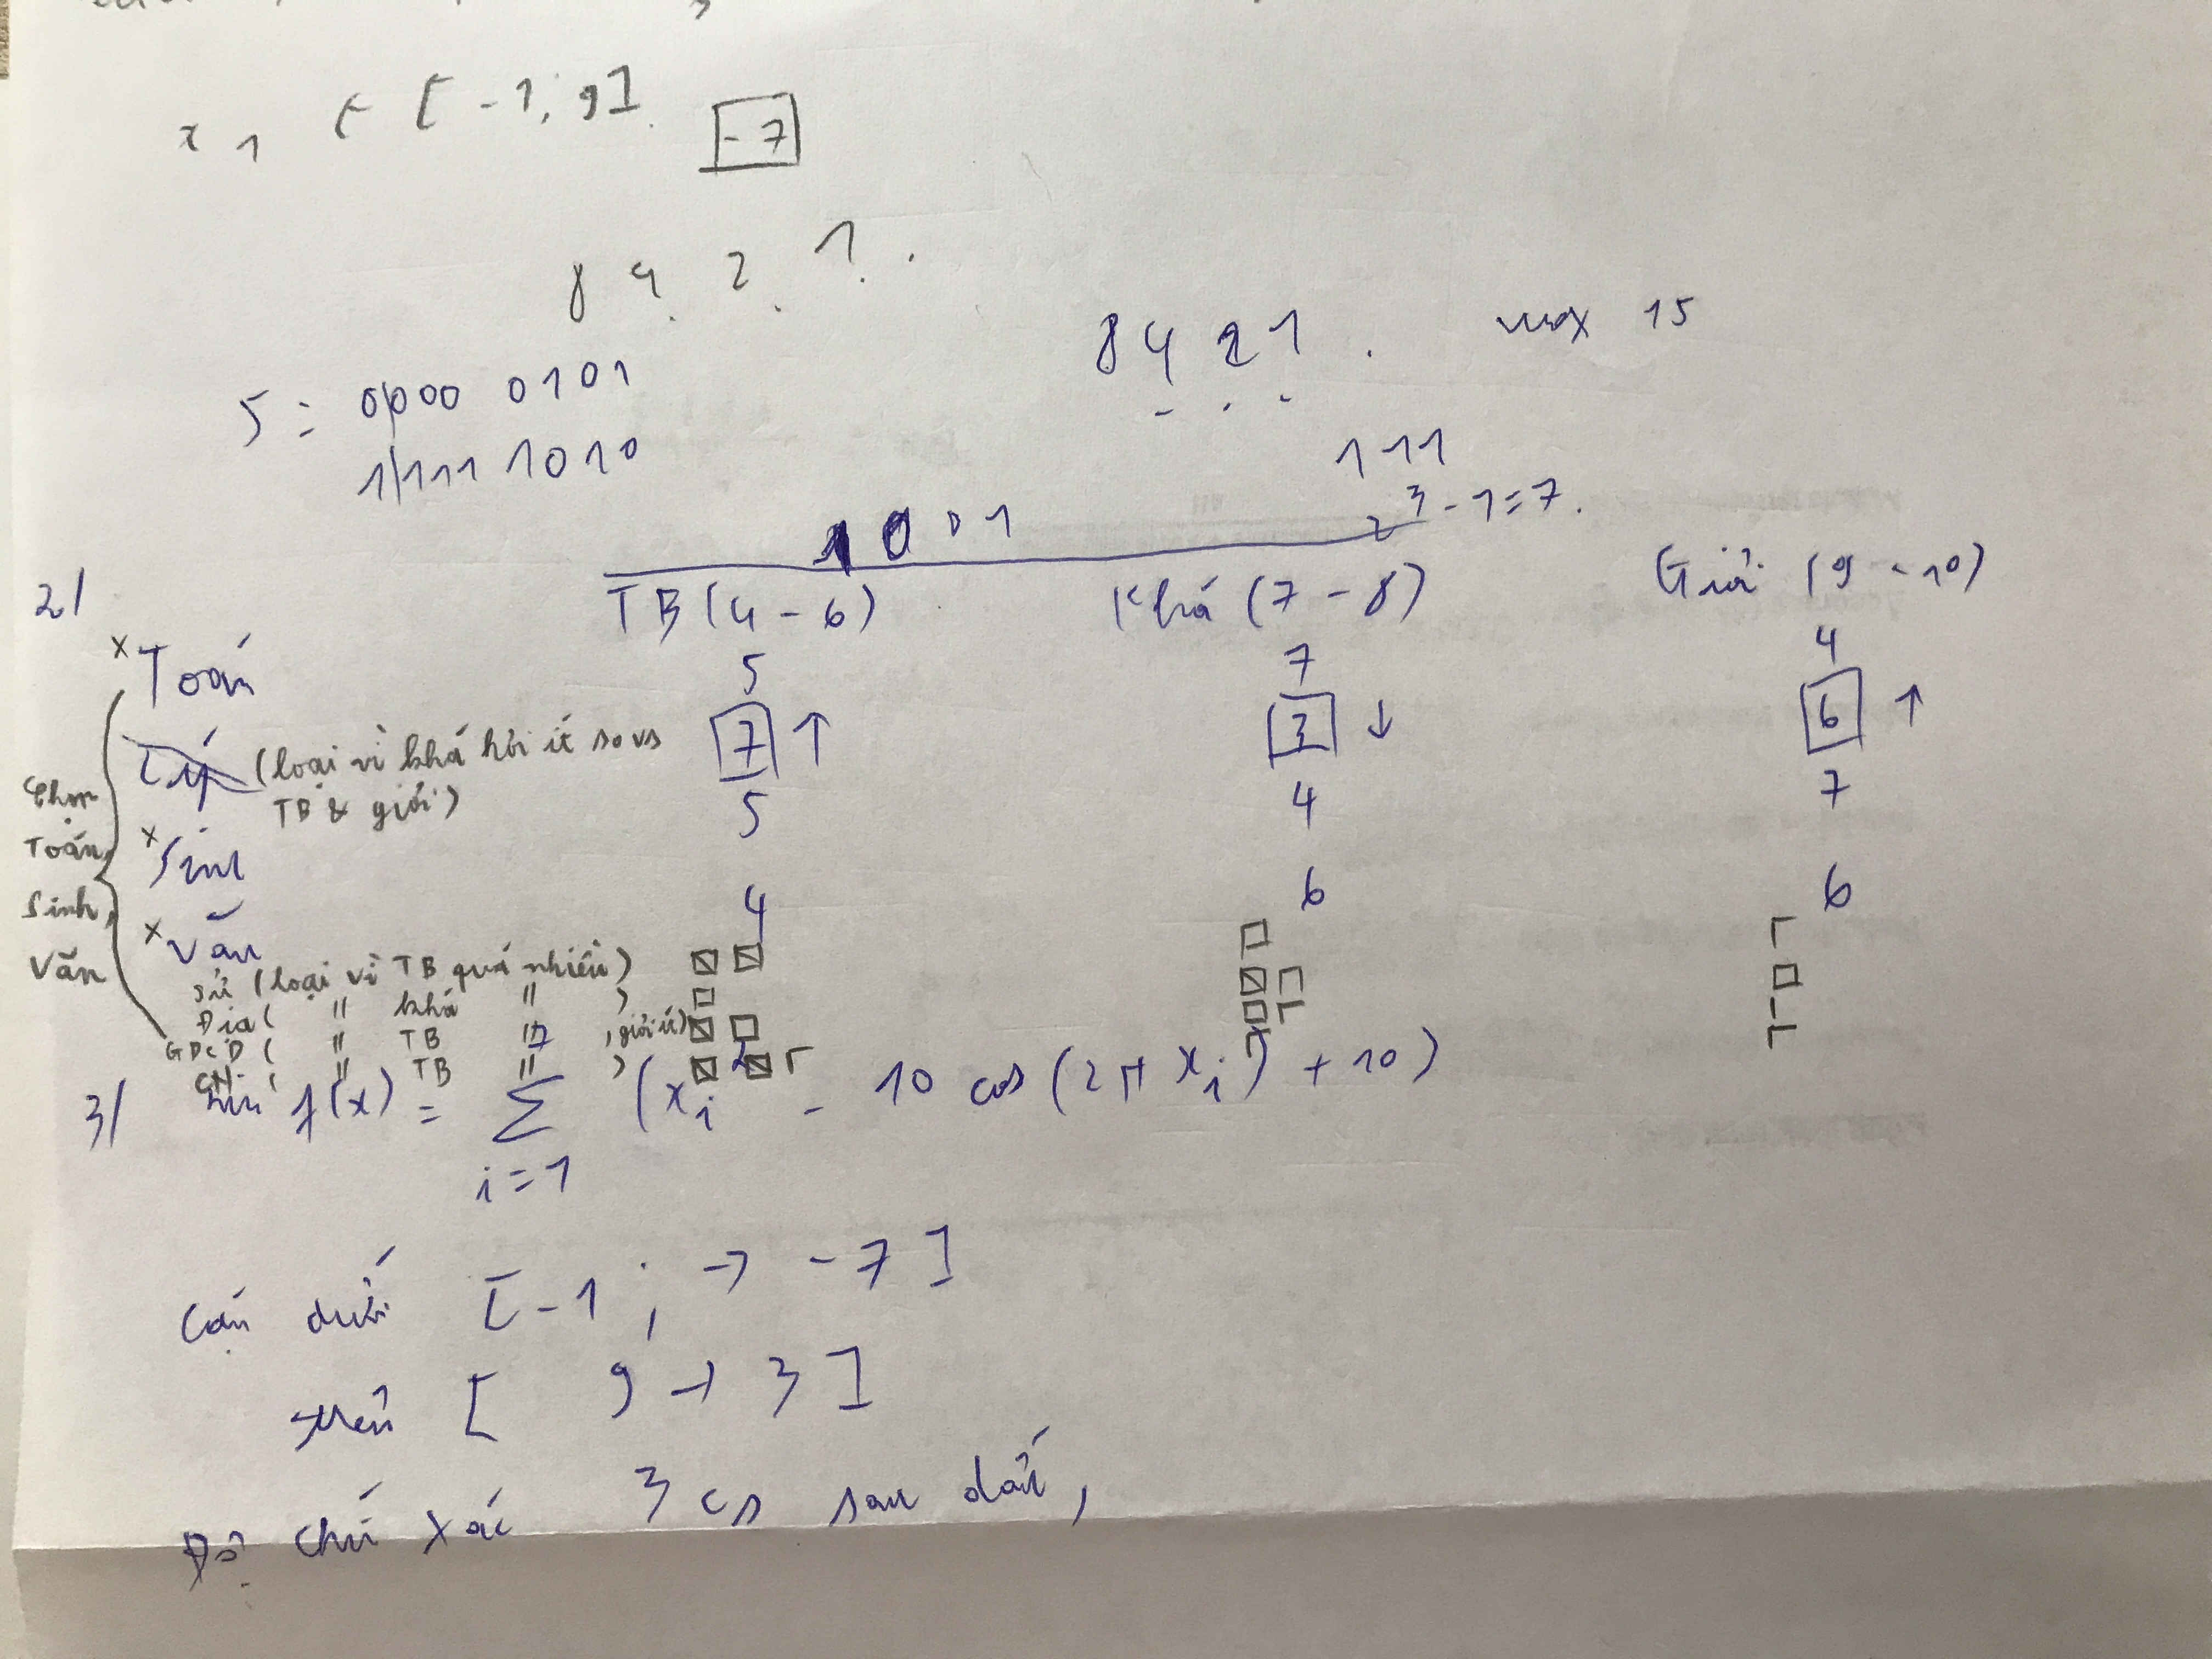 x1 ∈ [-1; 9] -7
8 4 2 1.
8 4 2 1. max 15
5 = 0000 0101
1111 1010
111
2^3 - 1 = 7.
1001
2/ TB (4 - 6) Khá (7 - 8) Giỏi (9 - 10)
x Toán 5 7 4
Lý (loại vì khá hơi ít so vs TB & giỏi) 7 ↑ 3 ↓ 6 ↑
x Sinh 5 4 7
x Văn 4 6 6
Chọn Toán, Sinh, Văn
Sử (loại vì TB quá nhiều)
Địa ( " khá " )
GDCD ( " TB " , giỏi ít)
CN ( " TB " )
3/ f(x) = Σ i=1 7 (xi^2 - 10 cos (2π xi) + 10)
Cận dưới [-1; → -7]
trên [ 9 → 3]
Độ chính xác 3 cs sau dấu,